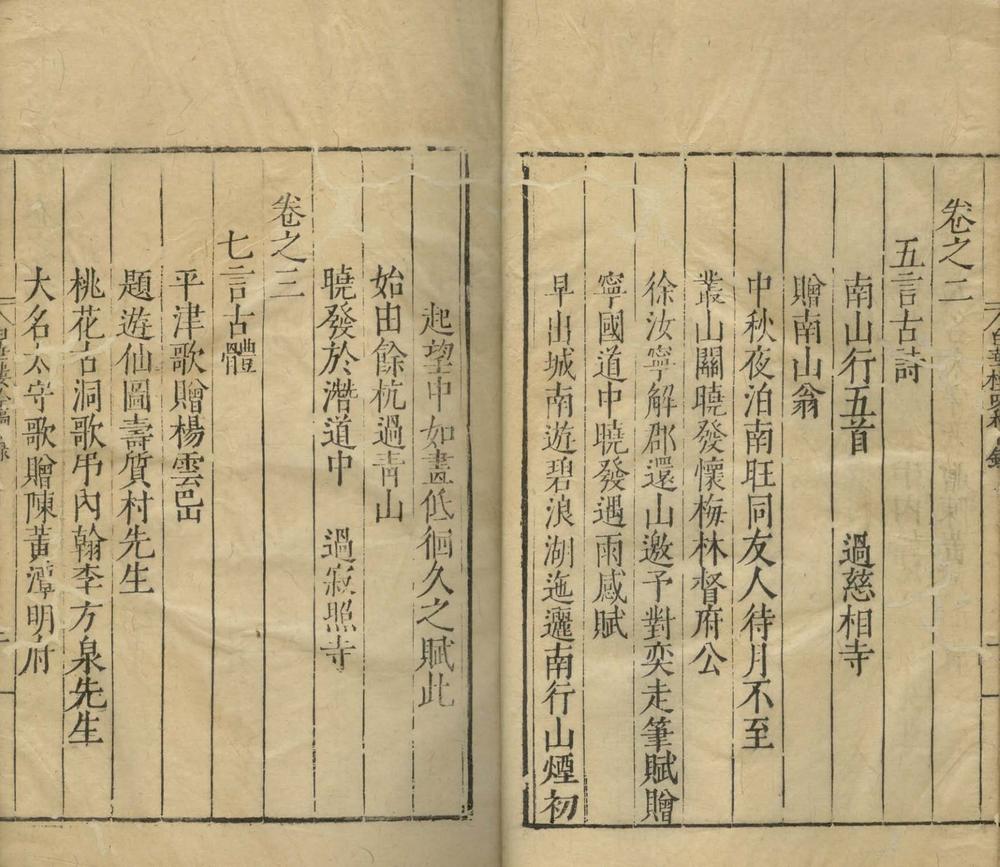 卷之二
五言古詩
南山行五首 過慈相寺
贈南山翁
中秋夜泊南旺同友人待月不至
叢山關曉發懷梅林督府公
徐汝寧解郡還山邀予對奕走筆賦贈
寧國道中曉發遇雨感賦
早出城南遊碧浪湖迤邐南行山煙初
起望中如畫低徊久之賦此
始由餘杭過青山
曉發於濳道中 過寂照寺
卷之三
七言古體
平津歌贈楊雲巴
題遊仙圖壽質村先生
桃花古洞歌弔內翰李方泉先生
大名太守歌贈陳黃潭明府